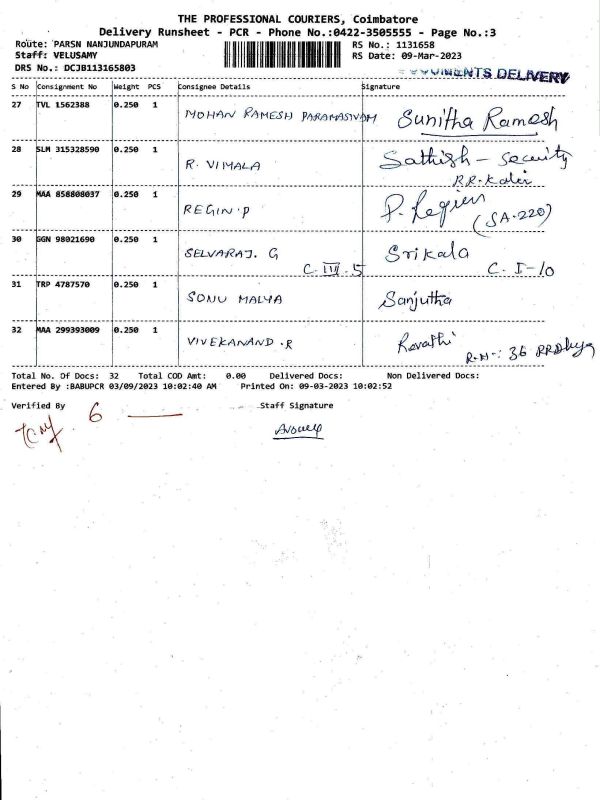 THE PROFESSIONAL COURIERS, Coimbatore
Delivery Runsheet - PCR - Phone No.:0422-3505555 - Page No.:3
Route: PARSN NANJUNDAPURAM
RS No.: 1131658
Staff: VELUSAMY
RS Date: 09-Mar-2023
DRS No.: DCJB113165803
DELIVERY
S No Consignment No Weight PCS Consignee Details Signature
27 TVL 1562388 0.250 1 MOHAN RAMESH PARAMASIVAM Sunitha Ramesh
28 SLM 315328590 0.250 1 R. VIMALA Sathish - Security
R.R.
29 MAA 858808037 0.250 1 REGIN.P P. Regin
(SA-220)
30 GGN 98021690 0.250 1 SELVARAJ. G Srikala
C. III. 5 C. I-10
31 TRP 4787570 0.250 1 SONU MALYA Sanjutha
32 MAA 299393009 0.250 1 VIVEKANAND.R Revathi
36
Total No. Of Docs: 32 Total COD Amt: 0.00 Delivered Docs: Non Delivered Docs:
Entered By :BABUPCR 03/09/2023 10:02:40 AM Printed On: 09-03-2023 10:02:52
Verified By Staff Signature
6